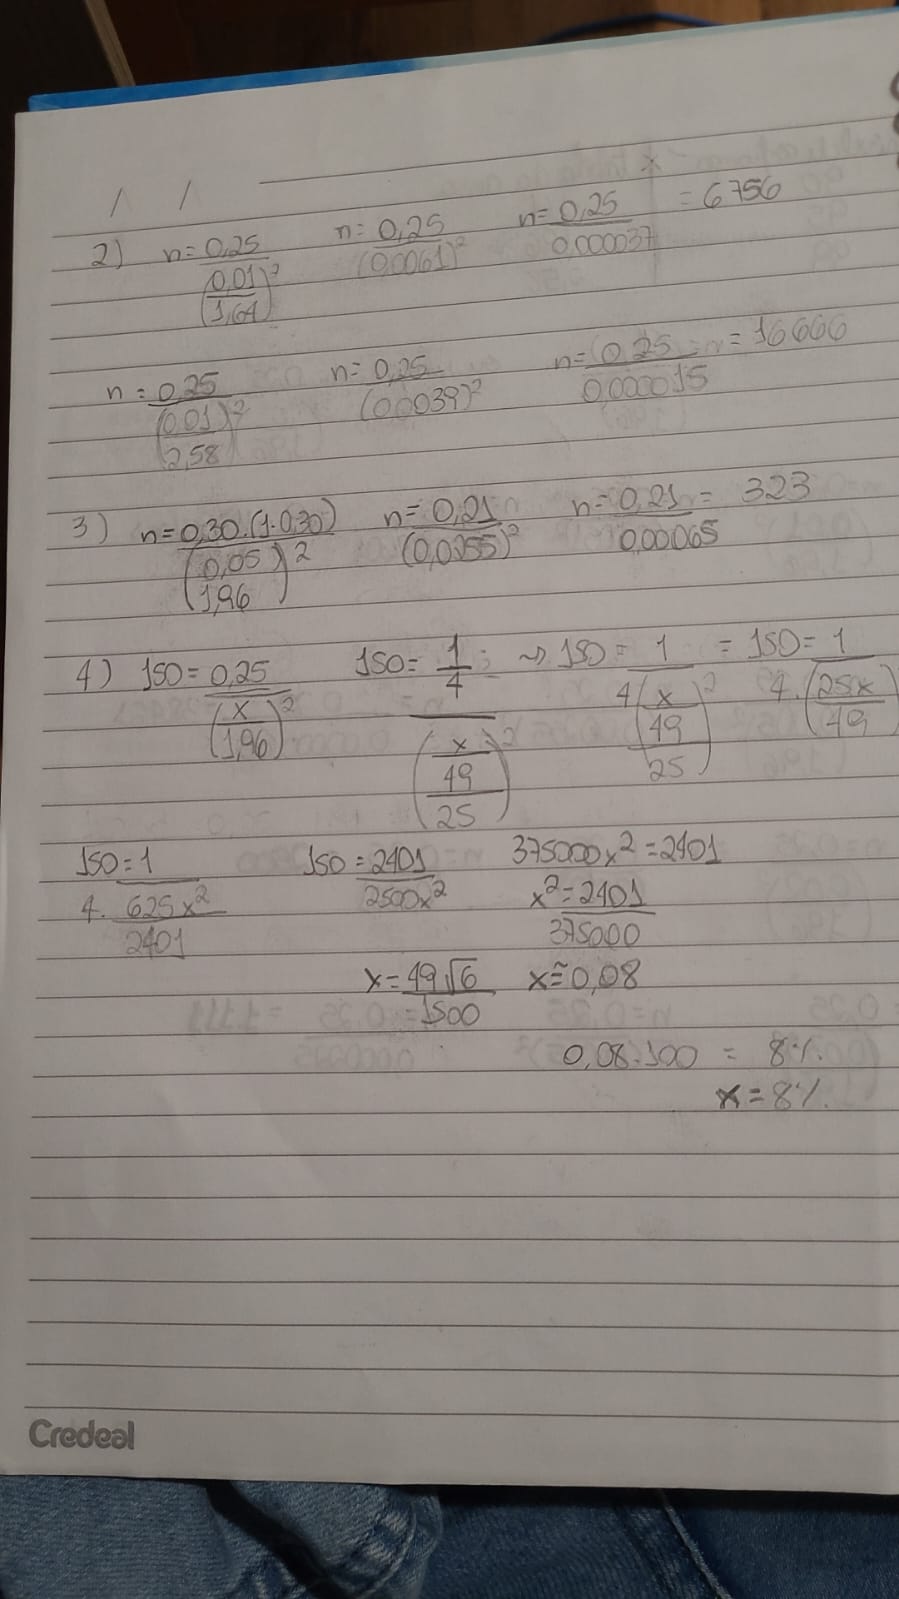 / /
2) n = 0,25/(0,01/1,64)² n = 0,25/(0,0061)² n = 0,25/0,000037 = 6756
n = 0,25/(0,01/2,58)² n = 0,25/(0,0039)² n = 0,25/0,000015 n = 16666
3) n = 0,30.(1-0,30)/(0,05/1,96)² n = 0,21/(0,0255)² n = 0,21/0,00065 = 323
4) 150 = 0,25/(x/1,96)² 150 = 1/4/(x/49/25)² ~> 150 = 1/4(x/49/25)² = 150 = 1/4.(25x/49)
150 = 1/4.625x²/2401 150 = 2401/2500x² 375000x² = 2401
x² = 2401/375000
x = 49√6/1500 x ≅ 0,08
0,08.100 = 8%
x = 8%
Credeal